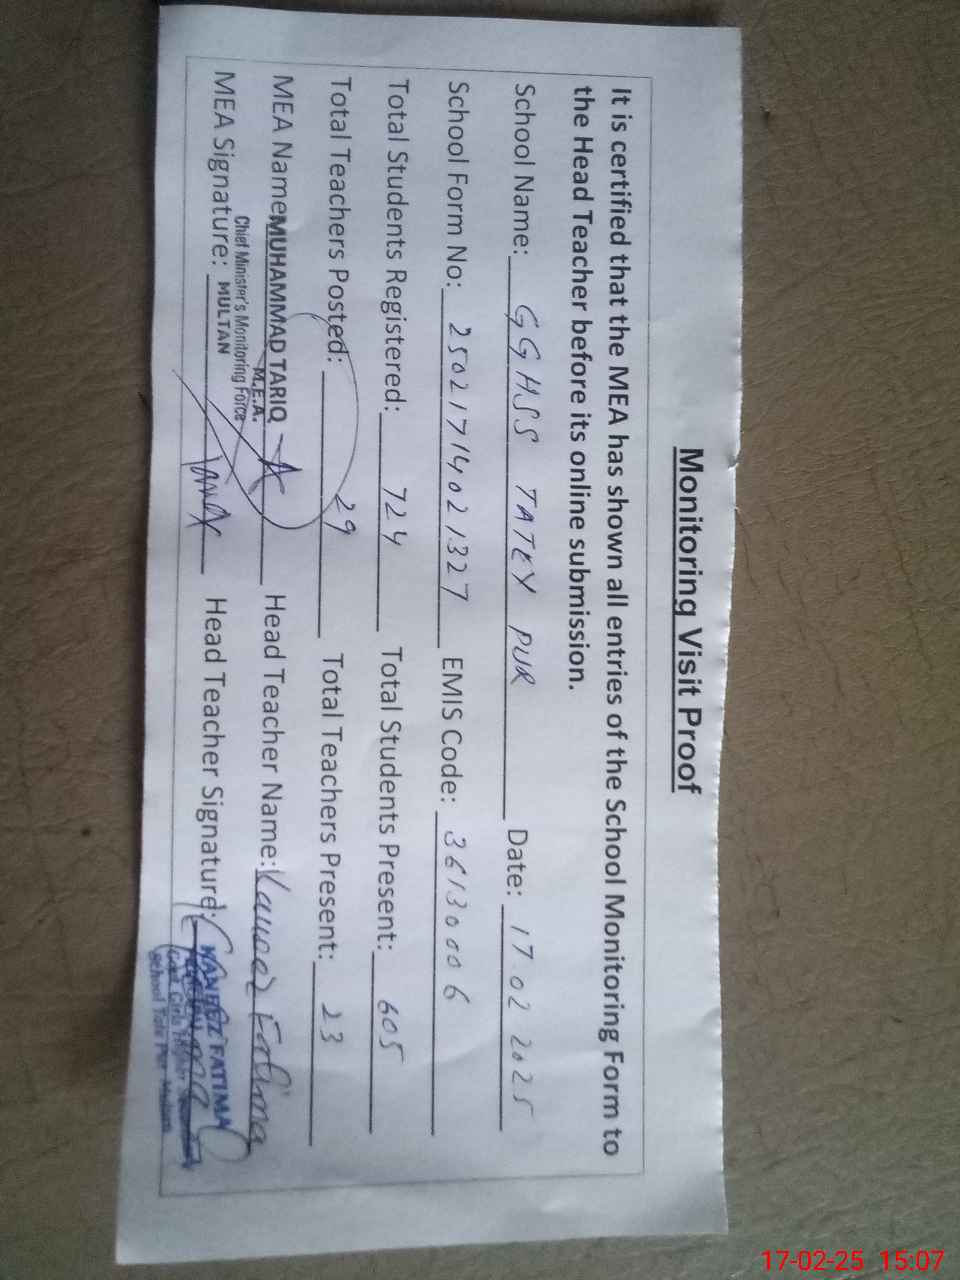 Monitoring Visit Proof
It is certified that the MEA has shown all entries of the School Monitoring Form to
the Head Teacher before its online submission.
School Name: GGHSS TATEY PUR Date: 17 02 2025
School Form No: 25021714021327 EMIS Code: 36130006
Total Students Registered: 724 Total Students Present: 605
Total Teachers Posted: 29 Total Teachers Present: 23
MEA Name: MUHAMMAD TARIQ Head Teacher Name: Kaneez Fatima
M.E.A.
Chief Minister's Monitoring Force
MULTAN
MEA Signature: Head Teacher Signature:
KANEEZ FATIMA
Govt. Girls Higher
School Tate Pur Multan
17-02-25 15:07